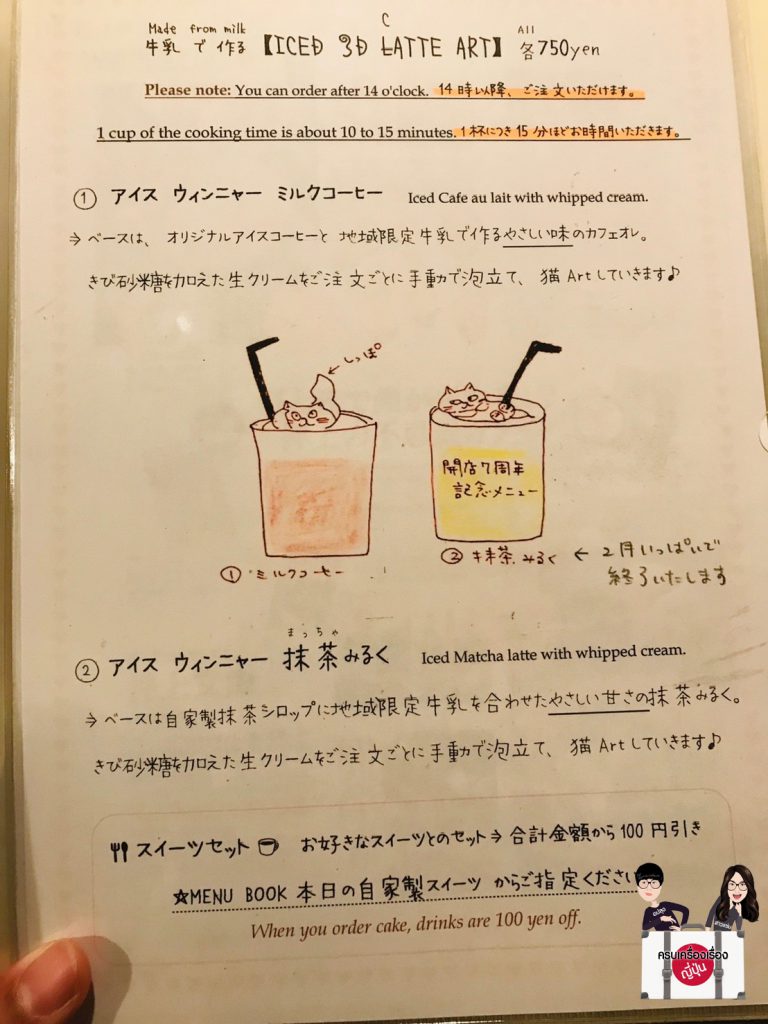 C
Made from milk
All
牛乳 で 作る 【ICED 3D LATTE ART】 各750yen
Please note: You can order after 14 o'clock. 14時以降、ご注文いただけます。
1 cup of the cooking time is about 10 to 15 minutes. 1杯につき15分ほどお時間いただきます。
① アイス ウィンニャー ミルクコーヒー Iced Cafe au lait with whipped cream.
⇒ ベースは、オリジナルアイスコーヒーと 地域限定牛乳で作るやさしい味のカフェオレ。
きび砂糖を加えた生クリームをご注文ごとに手動で泡立て、猫Artしていきます♪
しっぽ
開店7周年
記念メニュー
① ミルクコーヒー
② 抹茶みるく ← 2月いっぱいで
終了いたします
まっちゃ
② アイス ウィンニャー 抹茶みるく Iced Matcha latte with whipped cream.
⇒ ベースは自家製抹茶シロップに地域限定牛乳を合わせたやさしい甘さの抹茶みるく。
きび砂糖を加えた生クリームをご注文ごとに手動で泡立て、猫Artしていきます♪
スイーツセット お好きなスイーツとのセット⇒合計金額から100円引き
☆MENU BOOK 本日の自家製スイーツ からご指定ください
When you order cake, drinks are 100 yen off.
ครบเครื่องเรื่อง
ญี่ปุ่น